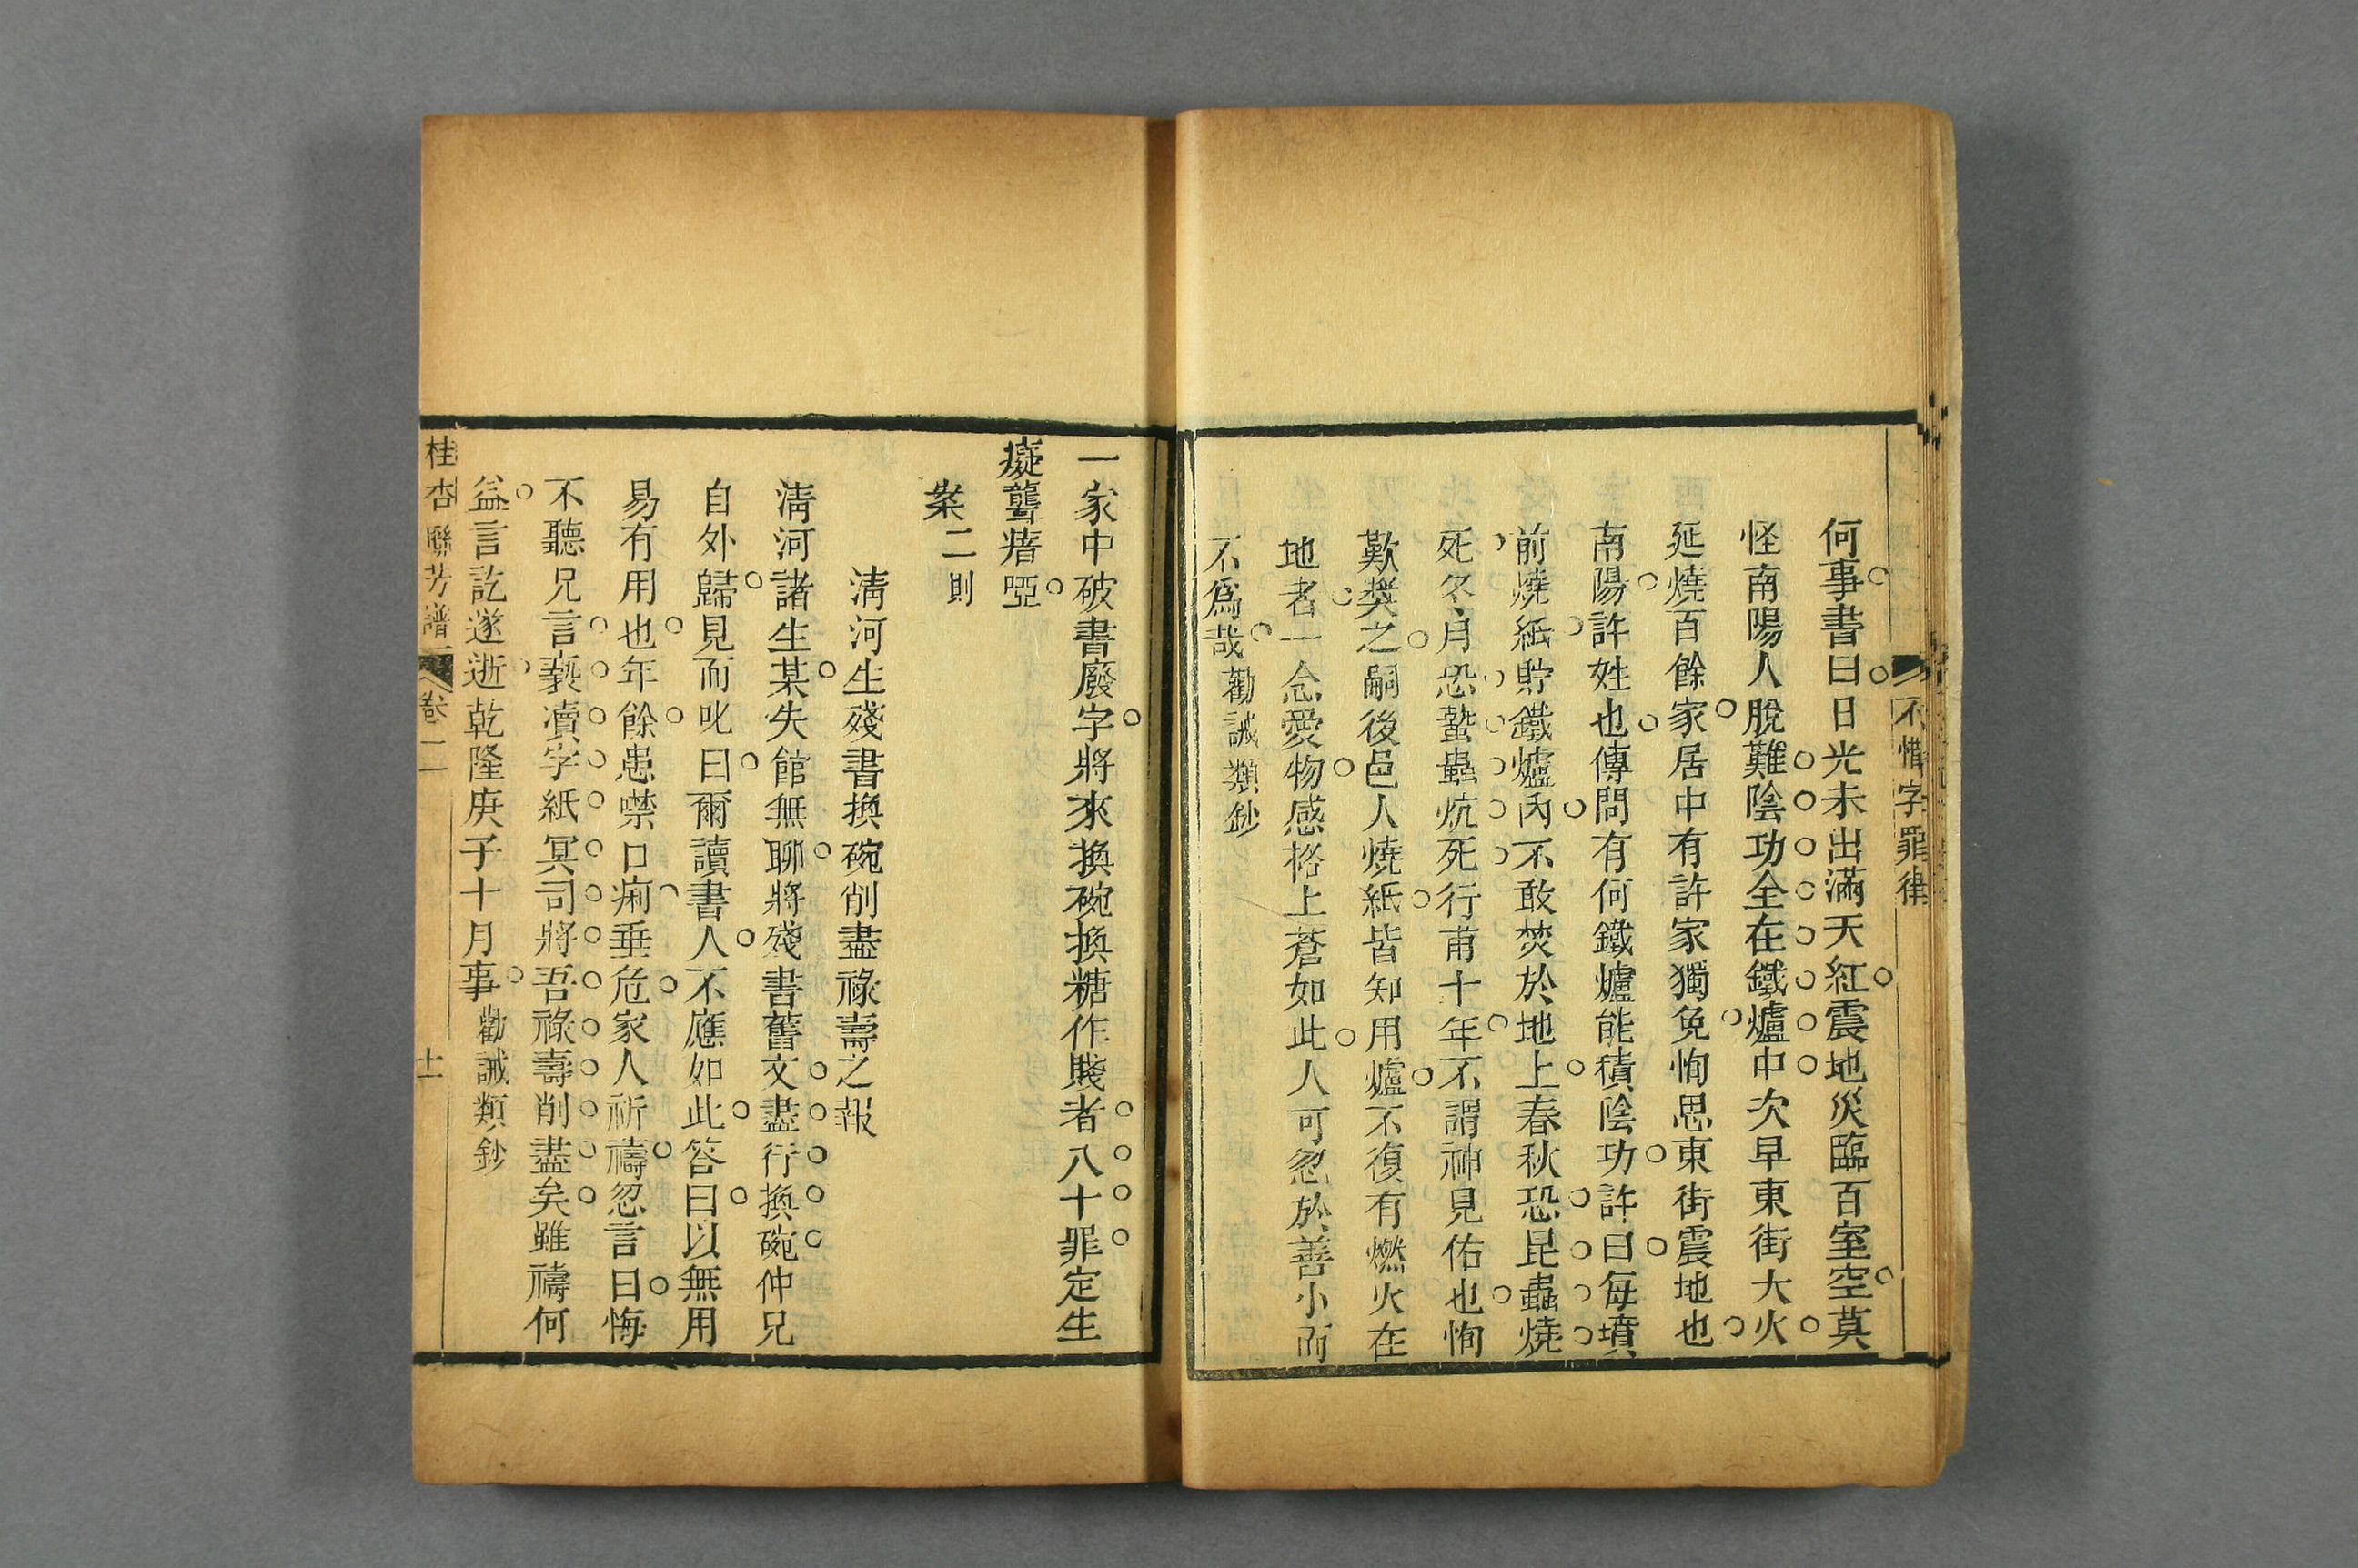 不惜字罪律
何事書曰日光未出滿天紅震地災臨百室空莫
怪南陽人脫難陰功全在鐵爐中次早東街大火
延燒百餘家居中有許家獨免恂思東街震地也
南陽許姓也傳問有何鐵爐能積陰功許曰每墳
前燒紙貯鐵爐內不敢焚於地上春秋恐昆蟲燒
死冬月恐蟄蟲炕死行甫十年不謂神見佑也恂
歎獎之嗣後邑人燒紙皆知用爐不復有燃火在
地者一念愛物感格上蒼如此人可忽於善小而
不爲哉勸誡類鈔
一家中破書廢字將來換碗換糖作賤者八十罪定生
癡聾瘖啞
案二則
淸河生殘書換碗削盡祿壽之報
淸河諸生某失館無聊將殘書舊文盡行換碗仲兄
自外歸見而叱曰爾讀書人不應如此答曰以無用
易有用也年餘患噤口痢垂危家人祈禱忽言曰悔
不聽兄言褻瀆字紙冥司將吾祿壽削盡矣雖禱何
益言訖遂逝乾隆庚子十月事勸誡類鈔
桂杏聯芳譜 卷二 十一